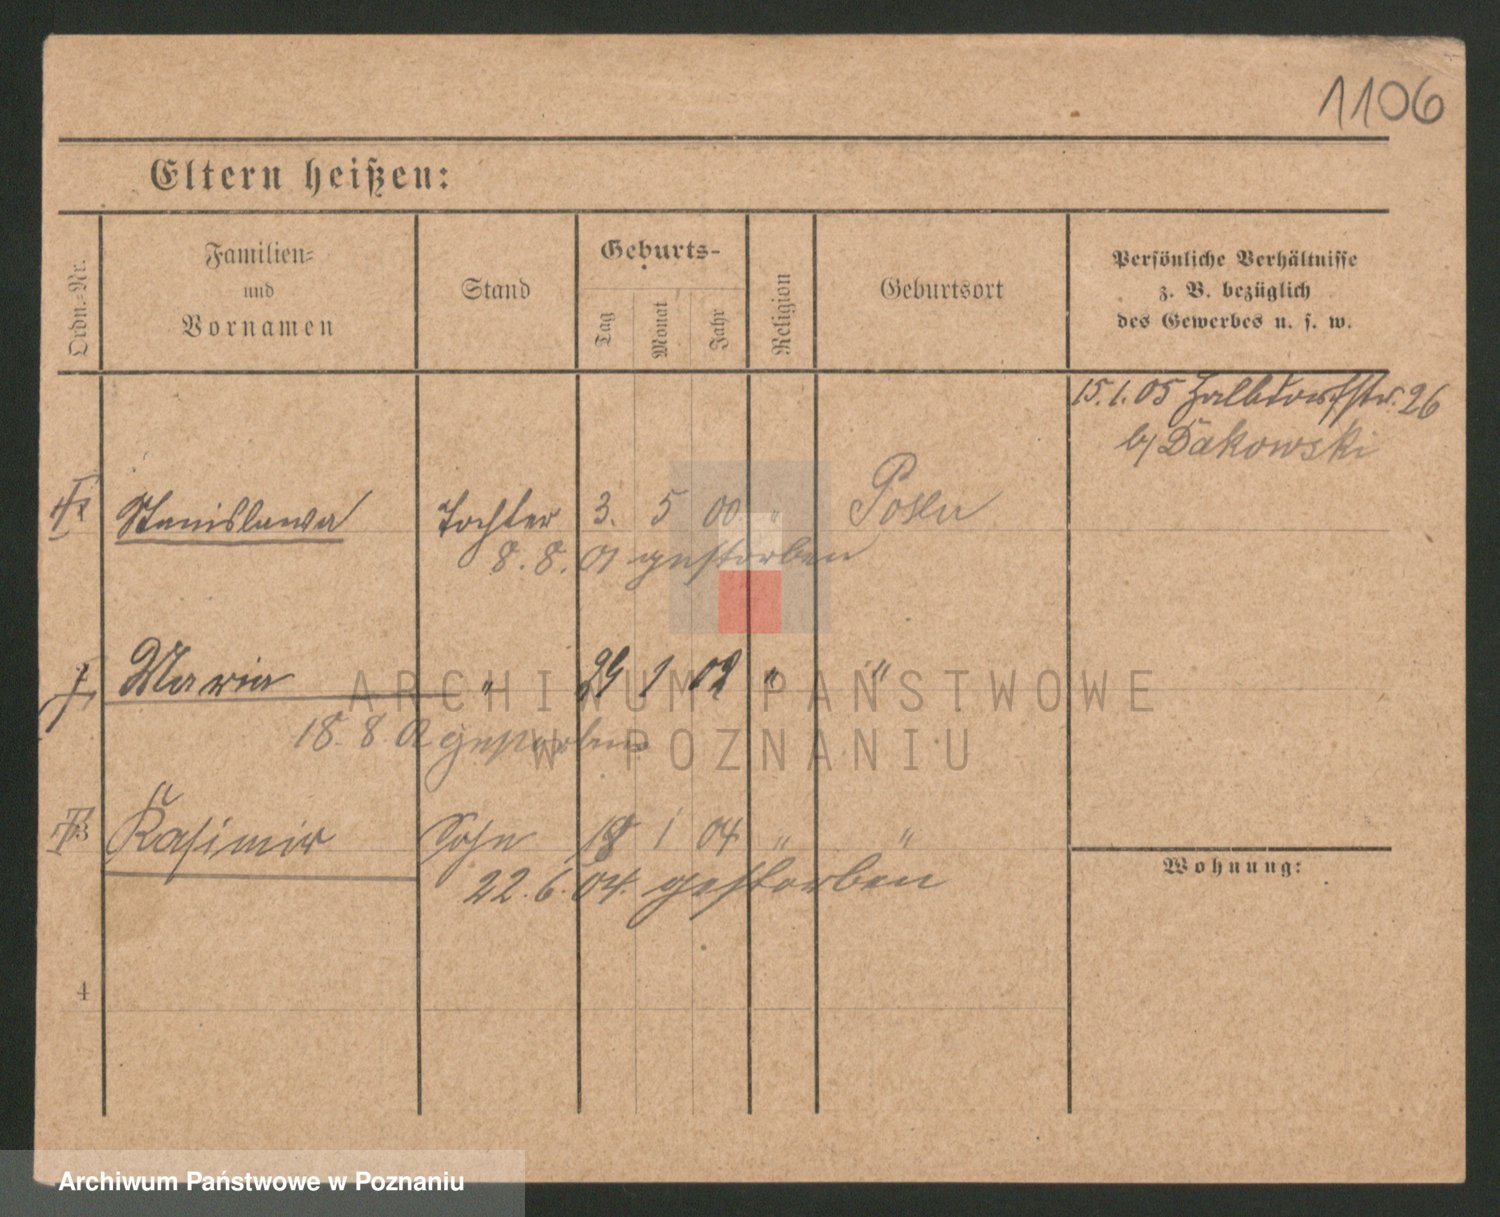 1106
Eltern heißen:
Ordn.-Nr.
Familien-
und
Vornamen
Stand
Geburts-
Tag
Monat
Jahr
Religion
Geburtsort
Persönliche Verhältnisse
z. B. bezüglich
des Gewerbes u. s. w.
15.1.05 Halbdorfstr. 26
b/ Dakowski
Stanislawa Tochter 3. 5 00 " Posen
8. 8. 01 gestorben
Maria " 24 1 02 " "
18. 8. 02 gestorben
3 Kasimir Sohn 18 1 04 " "
22. 6. 04. gestorben
Wohnung:
4
ARCHIWUM PAŃSTWOWE
W POZNANIU
Archiwum Państwowe w Poznaniu